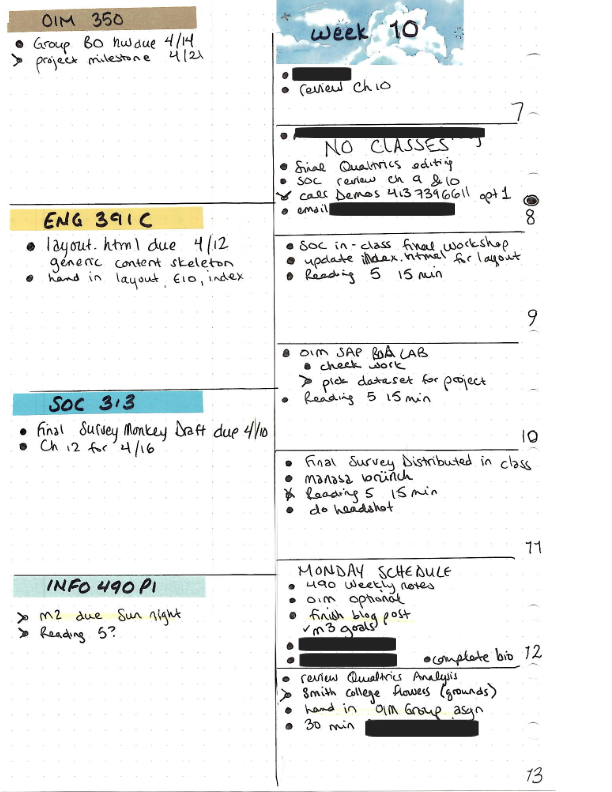 OIM 350
Group BO hw due 4/14
project milestone 4/21
ENG 391C
layout.html due 4/12
generic content skeleton
hand in layout, E10, index
SOC 313
Final Survey Monkey Draft due 4/10
Ch 12 for 4/16
INFO 490 P1
m2 due Sun night
Reading 5?
Week 10
review Ch 10
7
NO CLASSES
final Qualtrics editing
SOC review ch 9 & 10
call Demos 413 739 6611 opt 1
email
8
SOC in-class final workshop
update index.html for layout
Reading 5 15 min
9
OIM SAP BOA LAB
check work
pick dataset for project
Reading 5 15 min
10
Final Survey Distributed in class
manasa brunch
Reading 5 15 min
do headshot
11
MONDAY SCHEDULE
490 Weekly notes
OIM optional
finish blog post
✓m3 goals
complete bio
12
review Qualtrics Analysis
Smith college flowers (grounds)
hand in OIM Group asgn
30 min
13